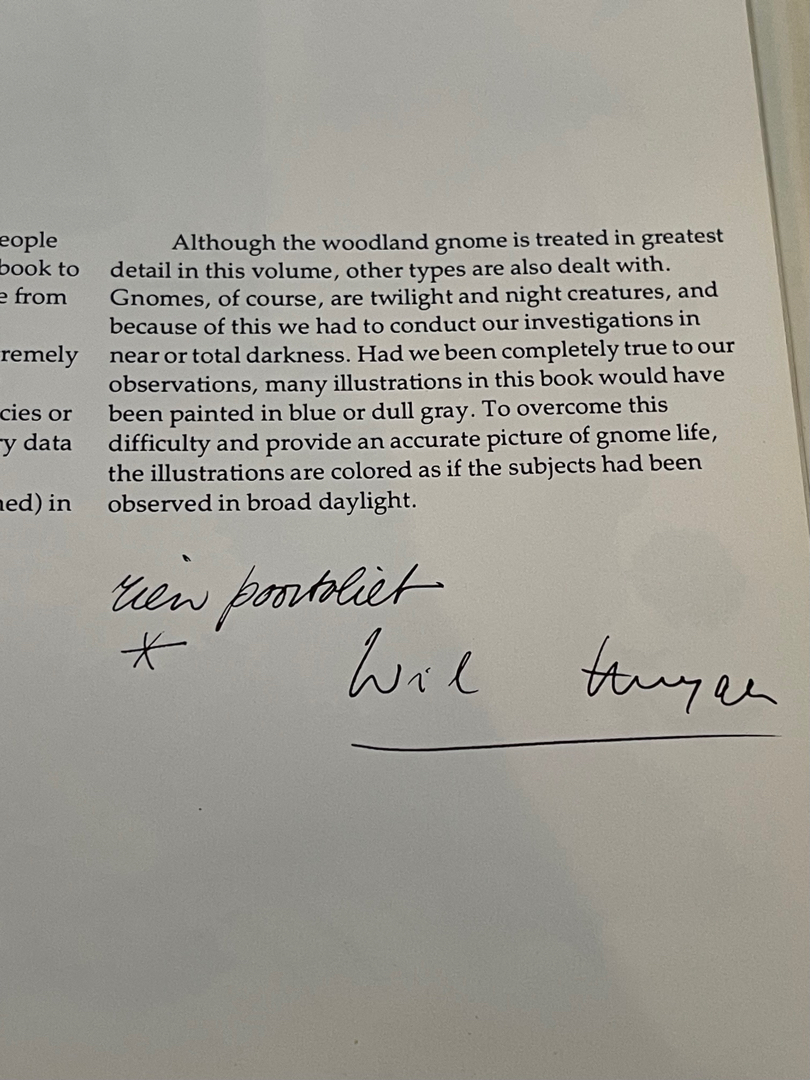 eople
book to
e from
remely
cies or
y data
ned) in
Although the woodland gnome is treated in greatest
detail in this volume, other types are also dealt with.
Gnomes, of course, are twilight and night creatures, and
because of this we had to conduct our investigations in
near or total darkness. Had we been completely true to our
observations, many illustrations in this book would have
been painted in blue or dull gray. To overcome this
difficulty and provide an accurate picture of gnome life,
the illustrations are colored as if the subjects had been
observed in broad daylight.
rien poortvliet
*
Wil Huygen